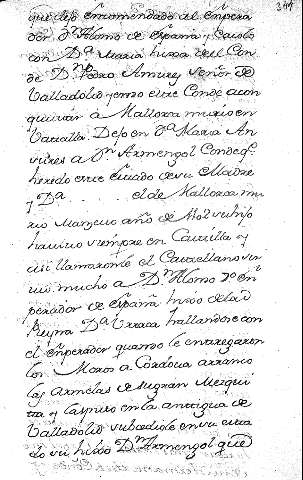 344
que dejo encomendado al empera
dor Dn. Alonso de España y Casolo
con Da. Maria hixa del Con
de Dn. Pedro Ansurez Señor de
Valladolid y como este Conde a con
quistar a Mallorca murio en
Castilla. Dejo en Da. Maria An
sures a Dn. Armengol Conde qe.
heredo este estado de su Madre
y Da el de Mallorca mu
rio Manceuo año de su hijo
hauiuo siempre en Castilla y
asi llamaronle el Castellano sir
uio mucho a Dn. Alonso 7o en
perador de España hixo de la
Reyna Da. Urraca hallandose con
el emperador quando le entregaron
los Moros a Cordoua arranco
las Armelas de su gran Mezqui
ta y las puso en la antigua de
Valladolid subcediole en su esta
do su hixo Dn. Armengol que